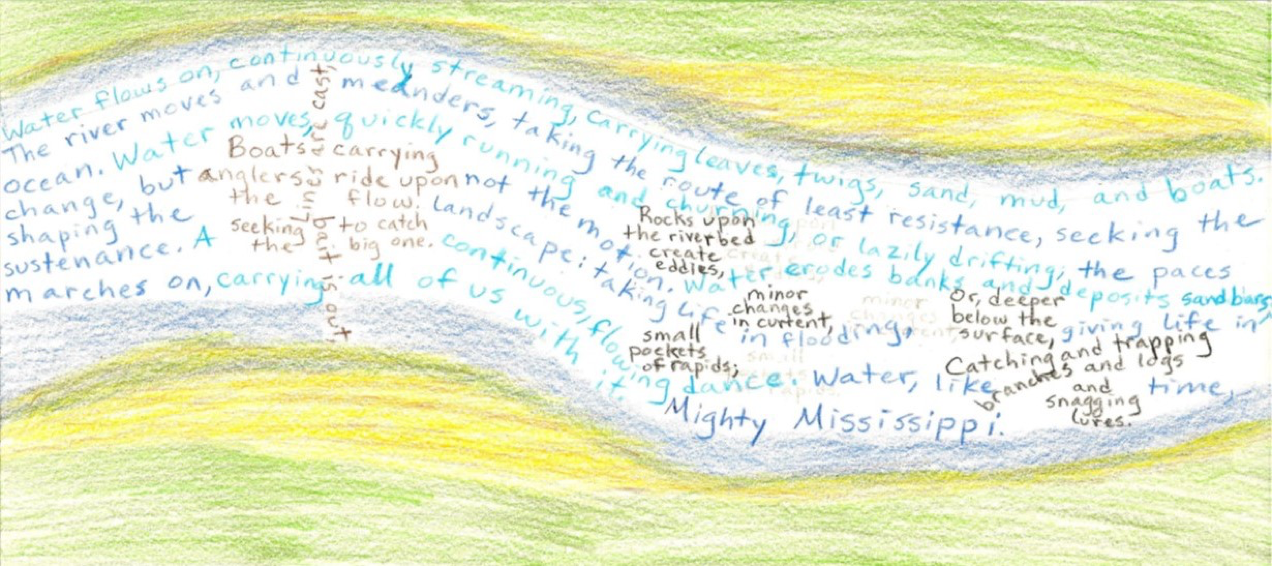 Water flows on, continuously streaming, carrying leaves, twigs, sand, mud, and boats.
The river moves and meanders, taking the route of least resistance, seeking the
ocean. Water moves, quickly running and churning, or lazily drifting; the paces
change, but not the motion. Water erodes banks and deposits sandbars,
shaping the landscape: taking life in flooding, giving life in
sustenance. A continuous, flowing dance. Water, like time,
marches on, carrying all of us with it. Mighty Mississippi.
Boats carrying
anglers ride upon
the flow.
seeking to catch
the big one.
Lines are cast,
bait is out,
Rocks upon
the riverbed
create
eddies,
minor
changes
in current,
small
pockets
of rapids;
Or, deeper
below the
surface,
Catching and trapping
branches and logs
and
snagging
lures.